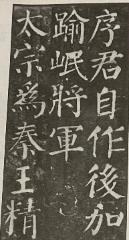 序君自作後加
踰岷將軍
太宗為秦王精